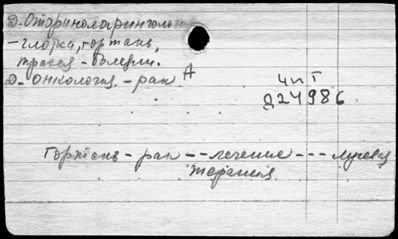 Д-Оториноларинголог
-глотка, гортань,
трахея - болезни.
Д- онкология. - рак А
4 и Т
Д24986
Гортань - рак -- лечение --- лучевая
терапия